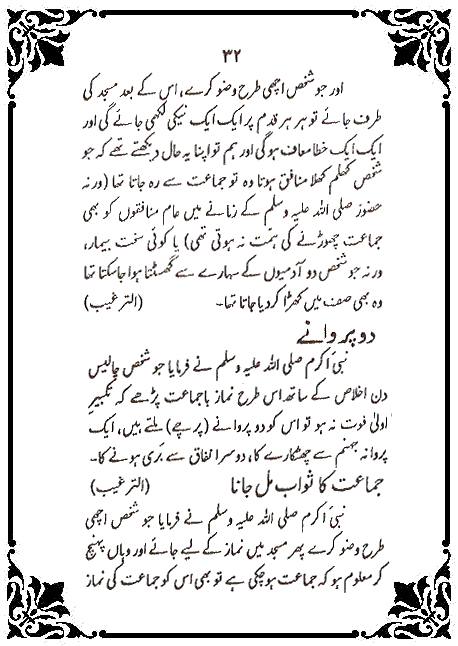 ۳۲
اور جو شخص اچھی طرح وضو کرے، اس کے بعد مسجد کی
طرف جائے تو ہر ہر قدم پر ایک ایک نیکی لکھی جائے گی اور
ایک ایک خطا معاف ہوگی اور ہم تو اپنا یہ حال دیکھتے تھے کہ جو
شخص کھلم کھلا منافق ہوتا وہ تو جماعت سے رہ جاتا تھا (ورنہ
حضورَ صلی اللہ علیہ وسلم کے زمانے میں عام منافقوں کو بھی
جماعت چھوڑنے کی ہمّت نہ ہوتی تھی) یا کوئی سخت بیمار،
ورنہ جو شخص دو آدمیوں کے سہارے سے گھسٹتا ہوا جا سکتا تھا
وہ بھی صف میں کھڑا کر دیا جاتا تھا۔ (الترغیب)
دو پروانے
نبیَ اکرم صلی اللہ علیہ وسلم نے فرمایا جو شخص چالیس
دن اخلاص کے ساتھ اس طرح نماز باجماعت پڑھے کہ تکبیرِ
اولیٰ فوت نہ ہو تو اس کو دو پروانے (پرچے) ملتے ہیں، ایک
پروانہ جہنم سے چھٹکارے کا، دوسرا نفاق سے بَری ہونے کا۔
جماعت کا ثواب مل جانا (الترغیب)
نبیَ اکرم صلی اللہ علیہ وسلم نے فرمایا جو شخص اچھی
طرح وضو کرے پھر مسجد میں نماز کے لیے جائے اور وہاں پہنچ
کر معلوم ہو کہ جماعت ہوچکی ہے تو بھی اس کو جماعت کی نماز